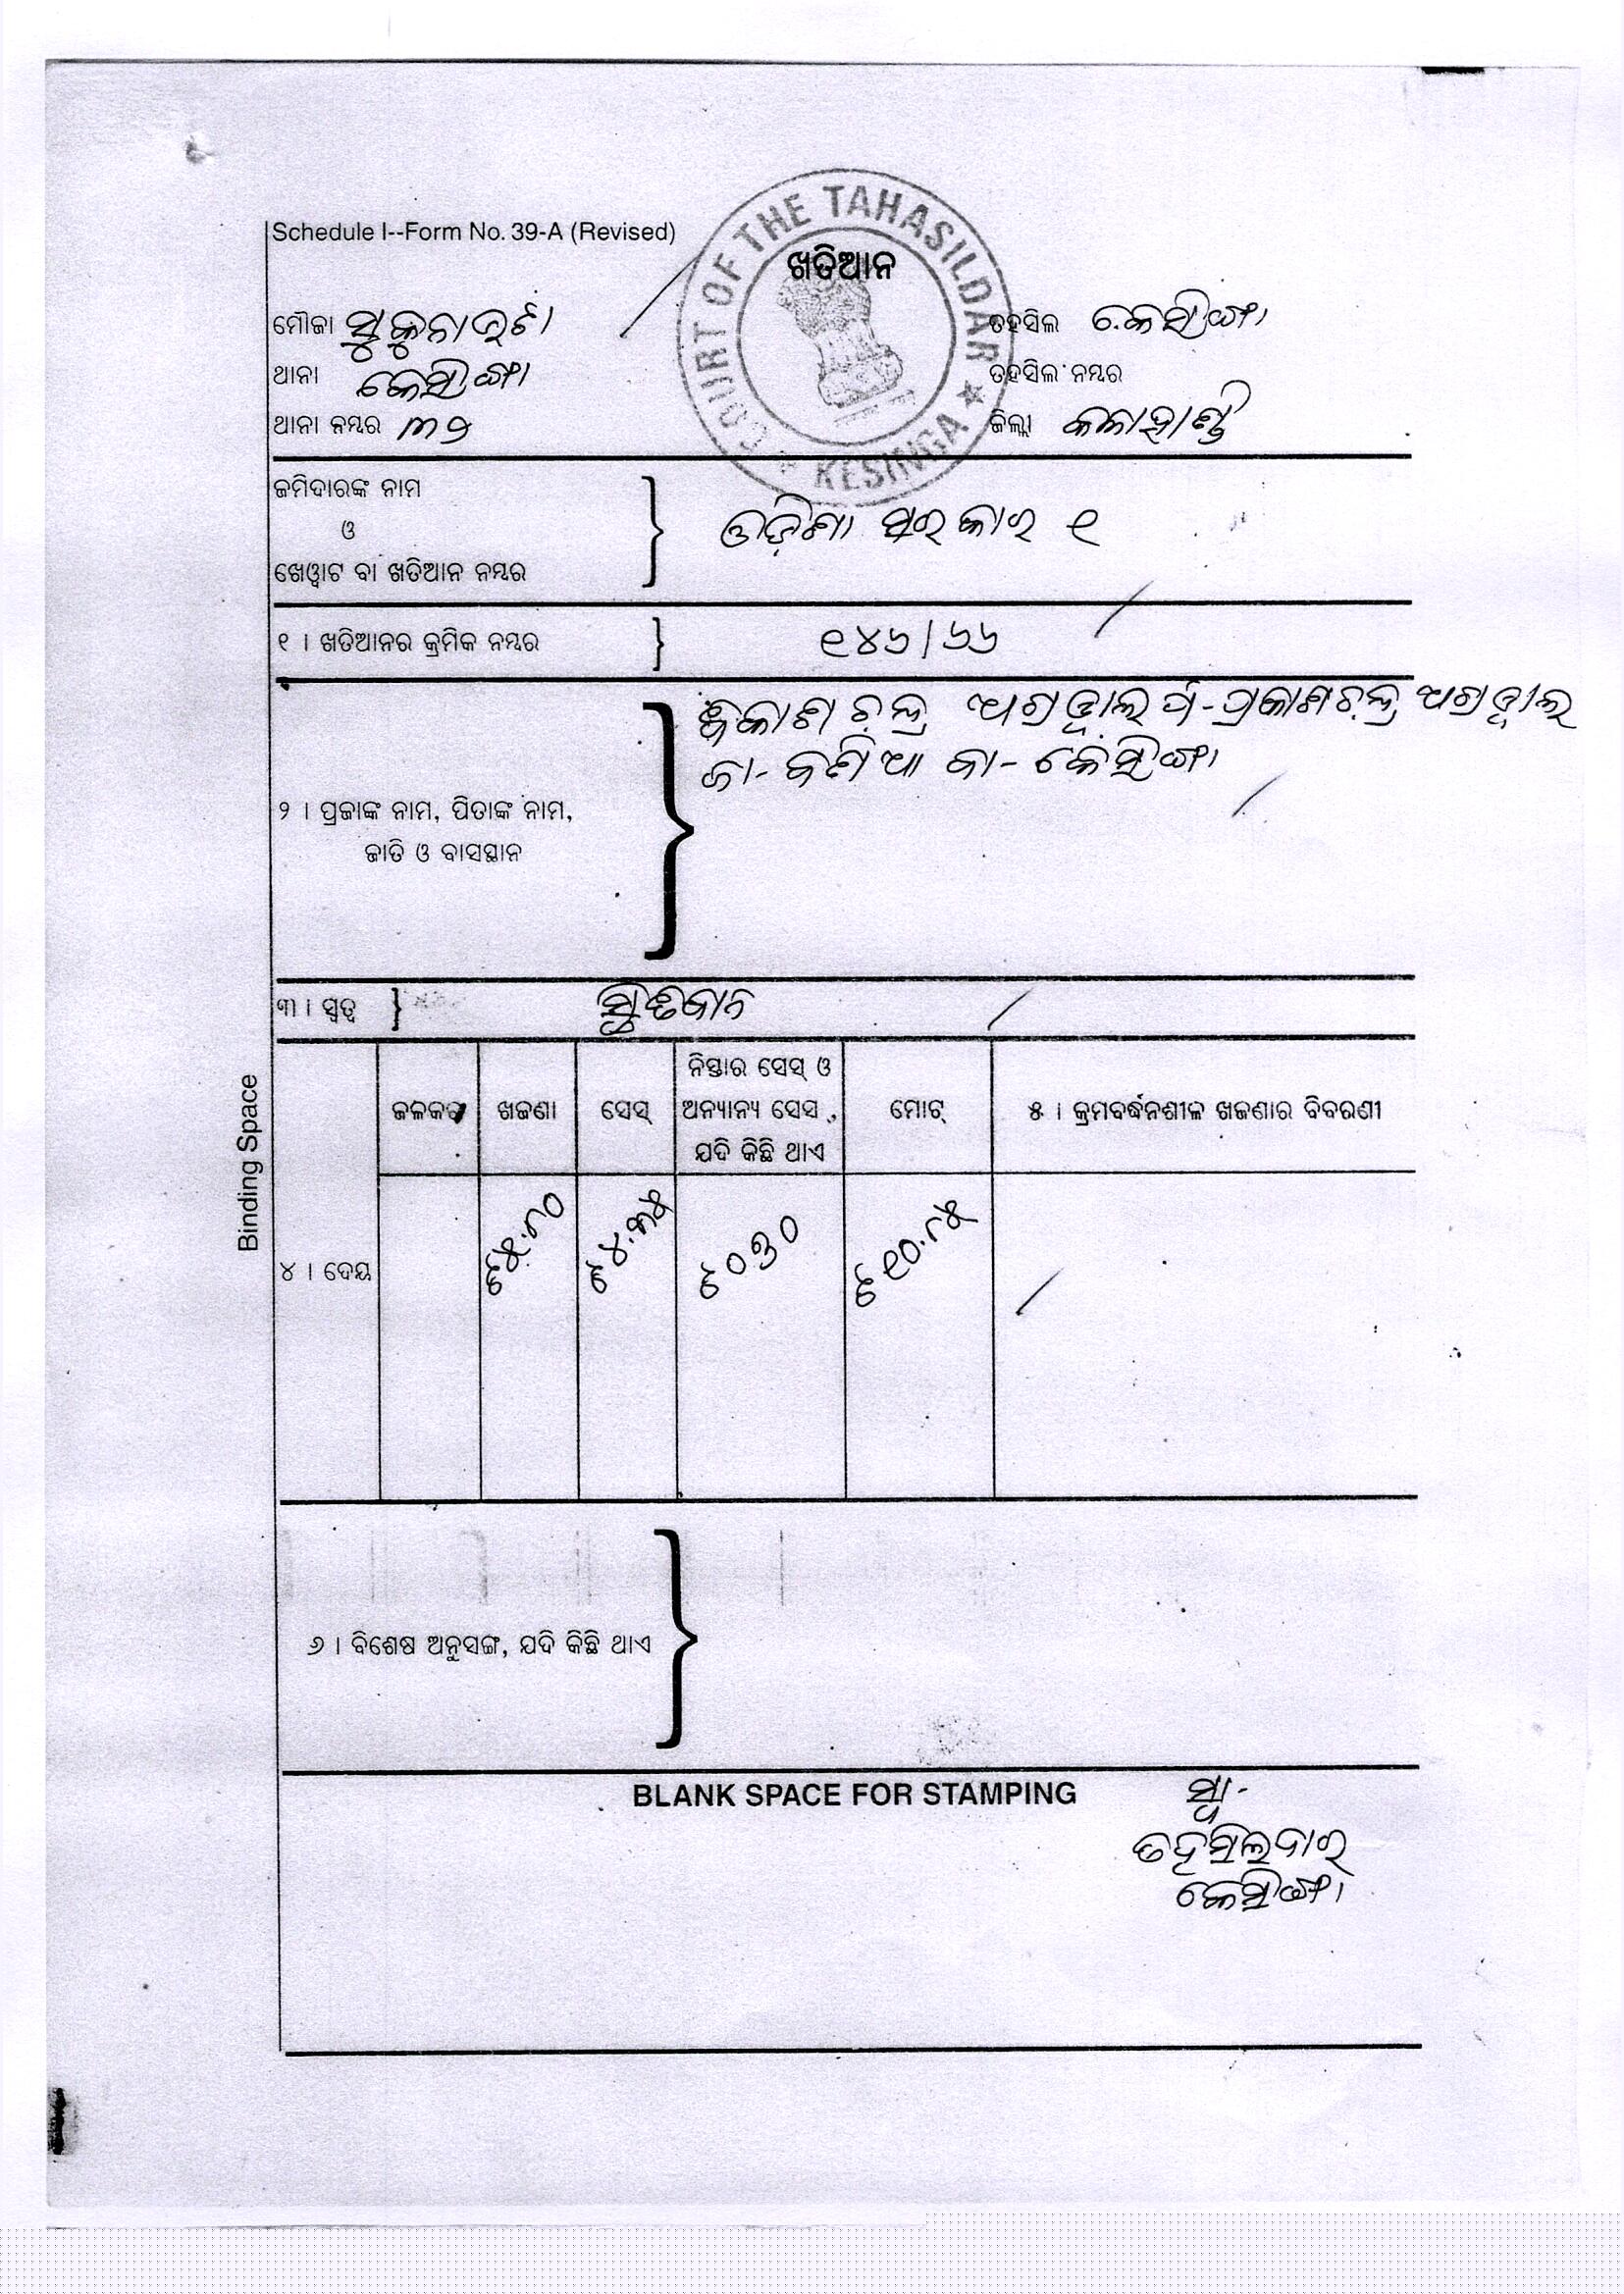 Schedule I--Form No. 39-A (Revised)
COURT OF THE TAHASILDAR
★ KESINGA ★
ଖତିଆନ
ମୌଜା ସୁକୁନାଭଟା
ତହସିଲ କେସିଙ୍ଗା
ଥାନା କେସିଙ୍ଗା
ତହସିଲ ନମ୍ବର
ଥାନା ନମ୍ବର ୩୨
ଜିଲ୍ଲା କଳାହାଣ୍ଡି
ଜମିଦାରଙ୍କ ନାମ
ଓ
ଖେୱାଟ ବା ଖତିଆନ ନମ୍ବର
ଓଡ଼ିଶା ସରକାର ୧
୧ । ଖତିଆନର କ୍ରମିକ ନମ୍ବର
୧୪୬/୬୬
ଚନ୍ଦ୍ର ଅଗ୍ରୱାଲ ପି-ପ୍ରକାଶଚନ୍ଦ୍ର ଅଗ୍ରୱାଲ
ଜା- ବଣିଆ ବା- କେସିଙ୍ଗା
୨ । ପ୍ରଜାଙ୍କ ନାମ, ପିତାଙ୍କ ନାମ,
ଜାତି ଓ ବାସସ୍ଥାନ
୩ । ସ୍ୱତ୍ୱ ସ୍ଥିତିବାନ
ଜଳକର ଖଜଣା ସେସ୍ ନିସ୍ତାର ସେସ୍ ଓ ଅନ୍ୟାନ୍ୟ ସେସ, ଯଦି କିଛି ଥାଏ ମୋଟ୍ ୫ । କ୍ରମବର୍ଦ୍ଧନଶୀଳ ଖଜଣାର ବିବରଣୀ
୪ । ଦେୟ ଟ୫.୮୦ ଟ୪.୩୫ ଟ୦୭୦ ଟ୧୦.୮୫
Binding Space
୬ । ବିଶେଷ ଅନୁସଙ୍ଗ, ଯଦି କିଛି ଥାଏ
BLANK SPACE FOR STAMPING
ସ୍ୱା-
ତହସିଲଦାର
କେସିଙ୍ଗା